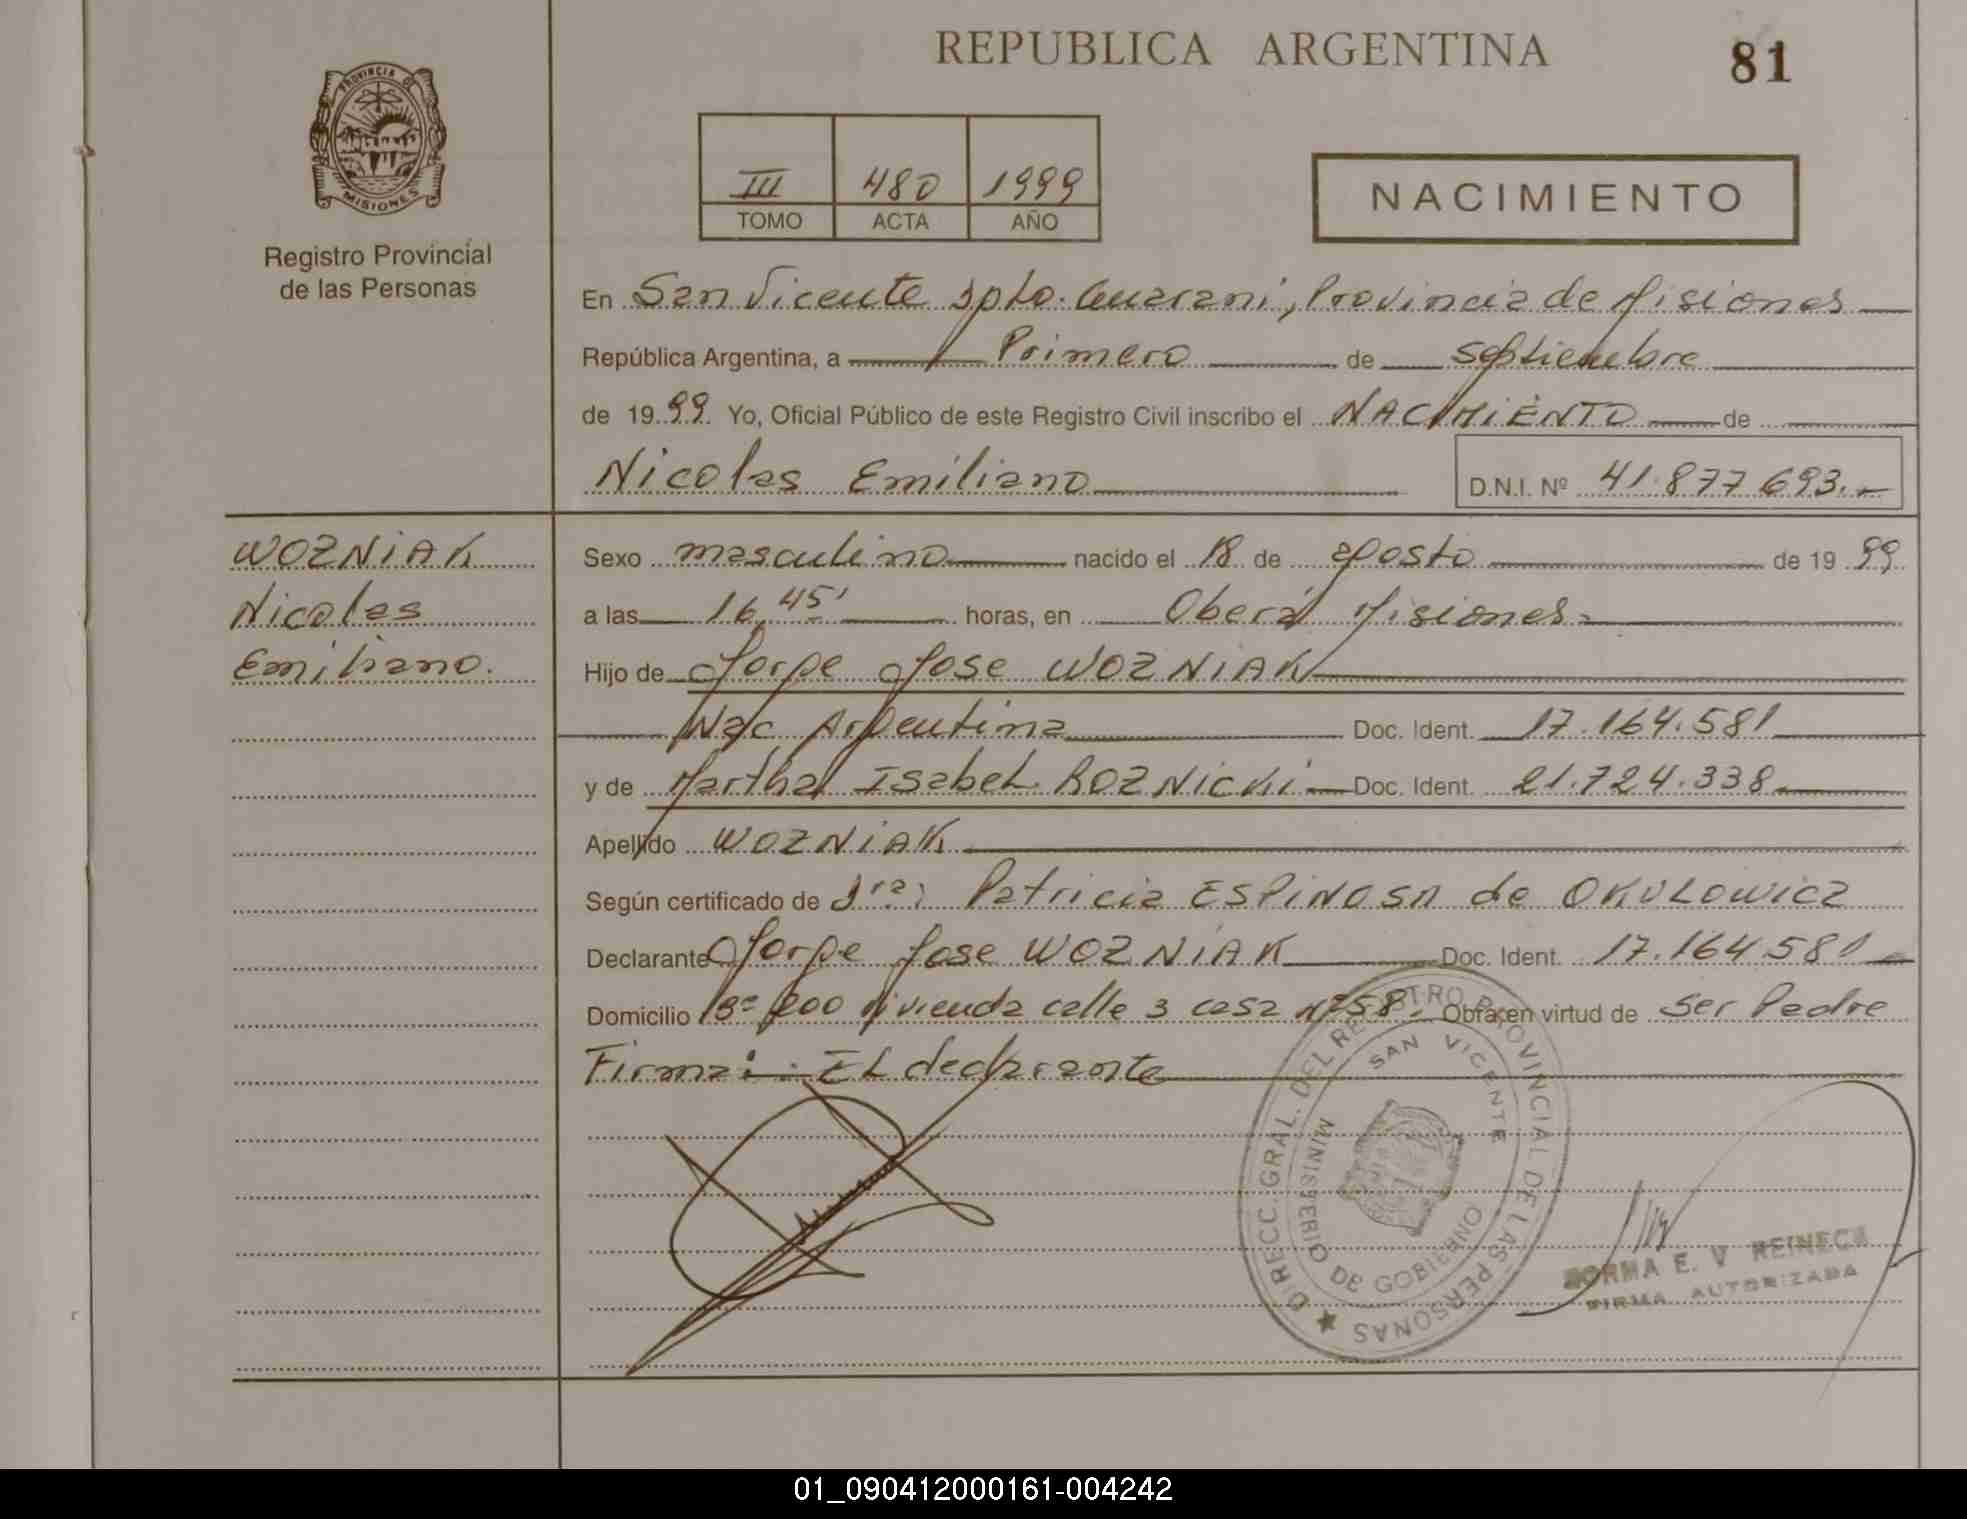 REPUBLICA ARGENTINA
81
PROVINCIA DE
MISIONES
Registro Provincial
de las Personas
III 480 1999
TOMO ACTA AÑO
NACIMIENTO
En San Vicente Dpto. Guarani, Provincia de Misiones
República Argentina, a Primero de Septiembre
de 1999 Yo, Oficial Público de este Registro Civil inscribo el NACIMIENTO de
Nicolas Emiliano
D.N.I. Nº 41.877.693.-
WOZNIAK
Nicolas
Emiliano.
Sexo masculino nacido el 18 de agosto de 1999
a las 16,45' horas, en Oberá Misiones
Hijo de Jorge Jose WOZNIAK
Nac Argentina Doc. Ident. 17.164.581
y de Martha Isabel ROZNICKI Doc. Ident. 21.724.338
Apellido WOZNIAK
Según certificado de Dra: Patricia ESPINOSA de OKULOWICZ
Declarante Jorge Jose WOZNIAK Doc. Ident. 17.164.581
Domicilio Bº 200 vivienda calle 3 casa nº58. Obra en virtud de Ser Padre
Firma: El declarante
DIRECC. GRAL. DEL REGISTRO PROVINCIAL DE LAS PERSONAS
SAN VICENTE
MINISTERIO DE GOBIERNO
NORMA E. V. REINECK
FIRMA AUTORIZADA
01_090412000161-004242